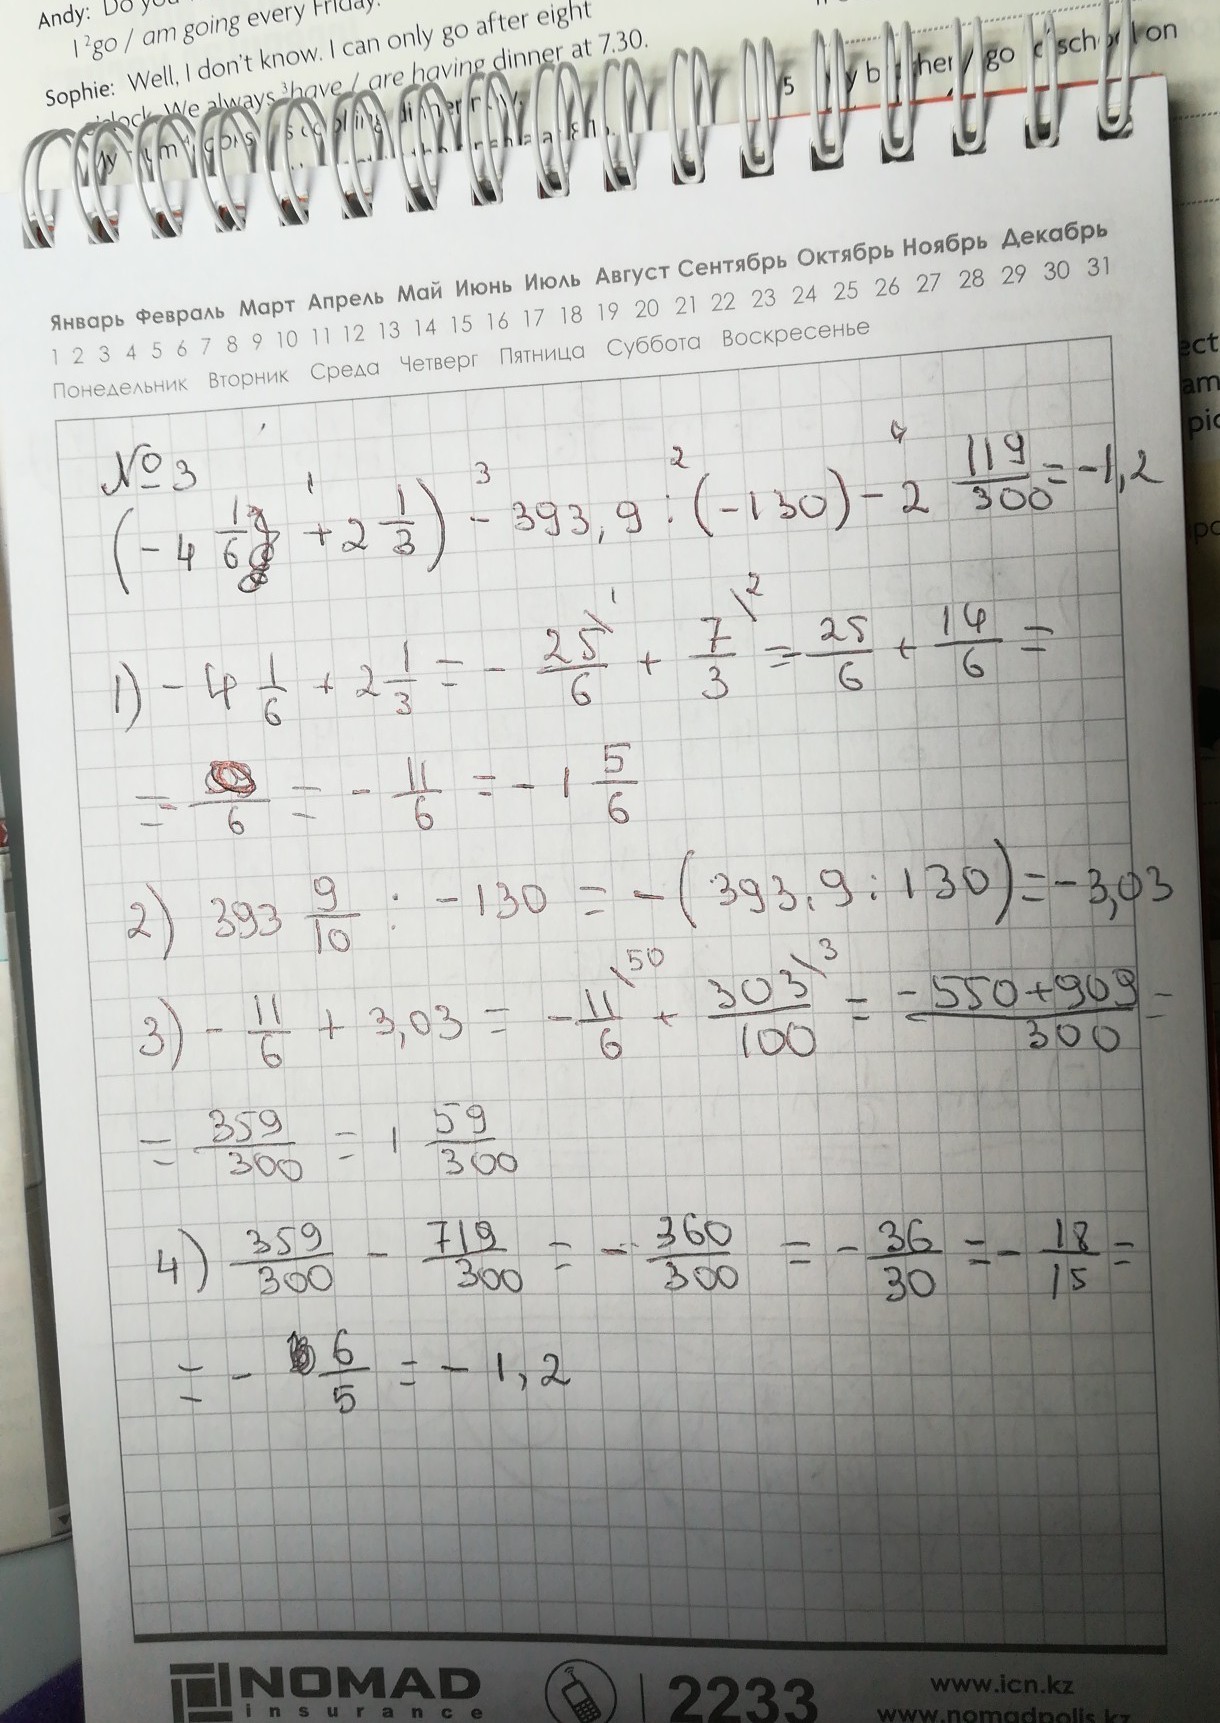 Andy: Do you
I ²go / am going every Friday.
Sophie: Well, I don't know. I can only go after eight
o'clock. We always ³have / are having dinner at 7.30.
5 go school on
Январь Февраль Март Апрель Май Июнь Июль Август Сентябрь Октябрь Ноябрь Декабрь
1 2 3 4 5 6 7 8 9 10 11 12 13 14 15 16 17 18 19 20 21 22 23 24 25 26 27 28 29 30 31
Понедельник Вторник Среда Четверг Пятница Суббота Воскресенье
№ 3
(-4 1/6 + 2 1/3) - 393,9 : (-130) - 2 119/300 = -1,2
1) -4 1/6 + 2 1/3 = - 25/6 + 7/3 = - 25/6 + 14/6 =
= /6 = - 11/6 = - 1 5/6
2) 393 9/10 : -130 = -(393,9 : 130) = -3,03
3) - 11/6 + 3,03 = - 11/6 + 303/100 = -550+909/300 =
= 359/300 = 1 59/300
4) 359/300 - 719/300 = - 360/300 = - 36/30 = - 18/15 =
= - 6/5 = - 1,2
NOMAD
insurance
2233
www.icn.kz
www.nomadpolis.kz